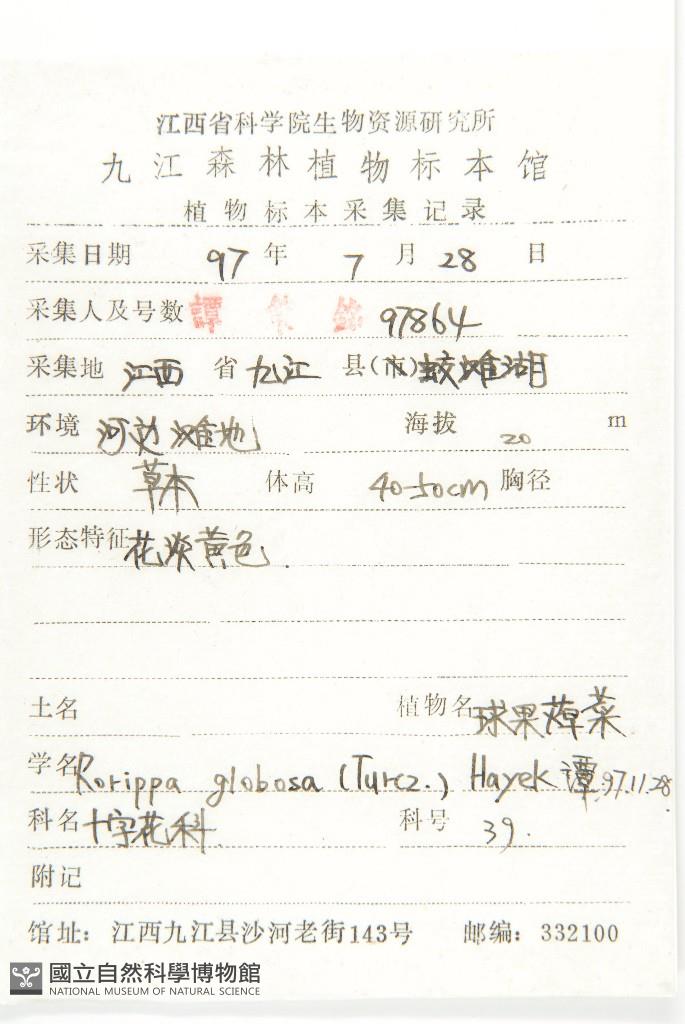 江西省科学院生物资源研究所
九江森林植物标本馆
植物标本采集记录
采集日期 97 年 7 月 28 日
采集人及号数 譚 策 銘 97864
采集地 江西 省 九江 县(市) 蛟滩湖
环境 河边滩地 海拔 20 m
性状 草本 体高 40-50cm 胸径
形态特征 花淡黄色.
土名 植物名 球果蔊菜
学名 Rorippa globosa (Turcz.) Hayek 谭 97.11.28
科名 十字花科 科号 39.
附记
馆址：江西九江县沙河老街143号 邮编：332100
國立自然科學博物館
NATIONAL MUSEUM OF NATURAL SCIENCE